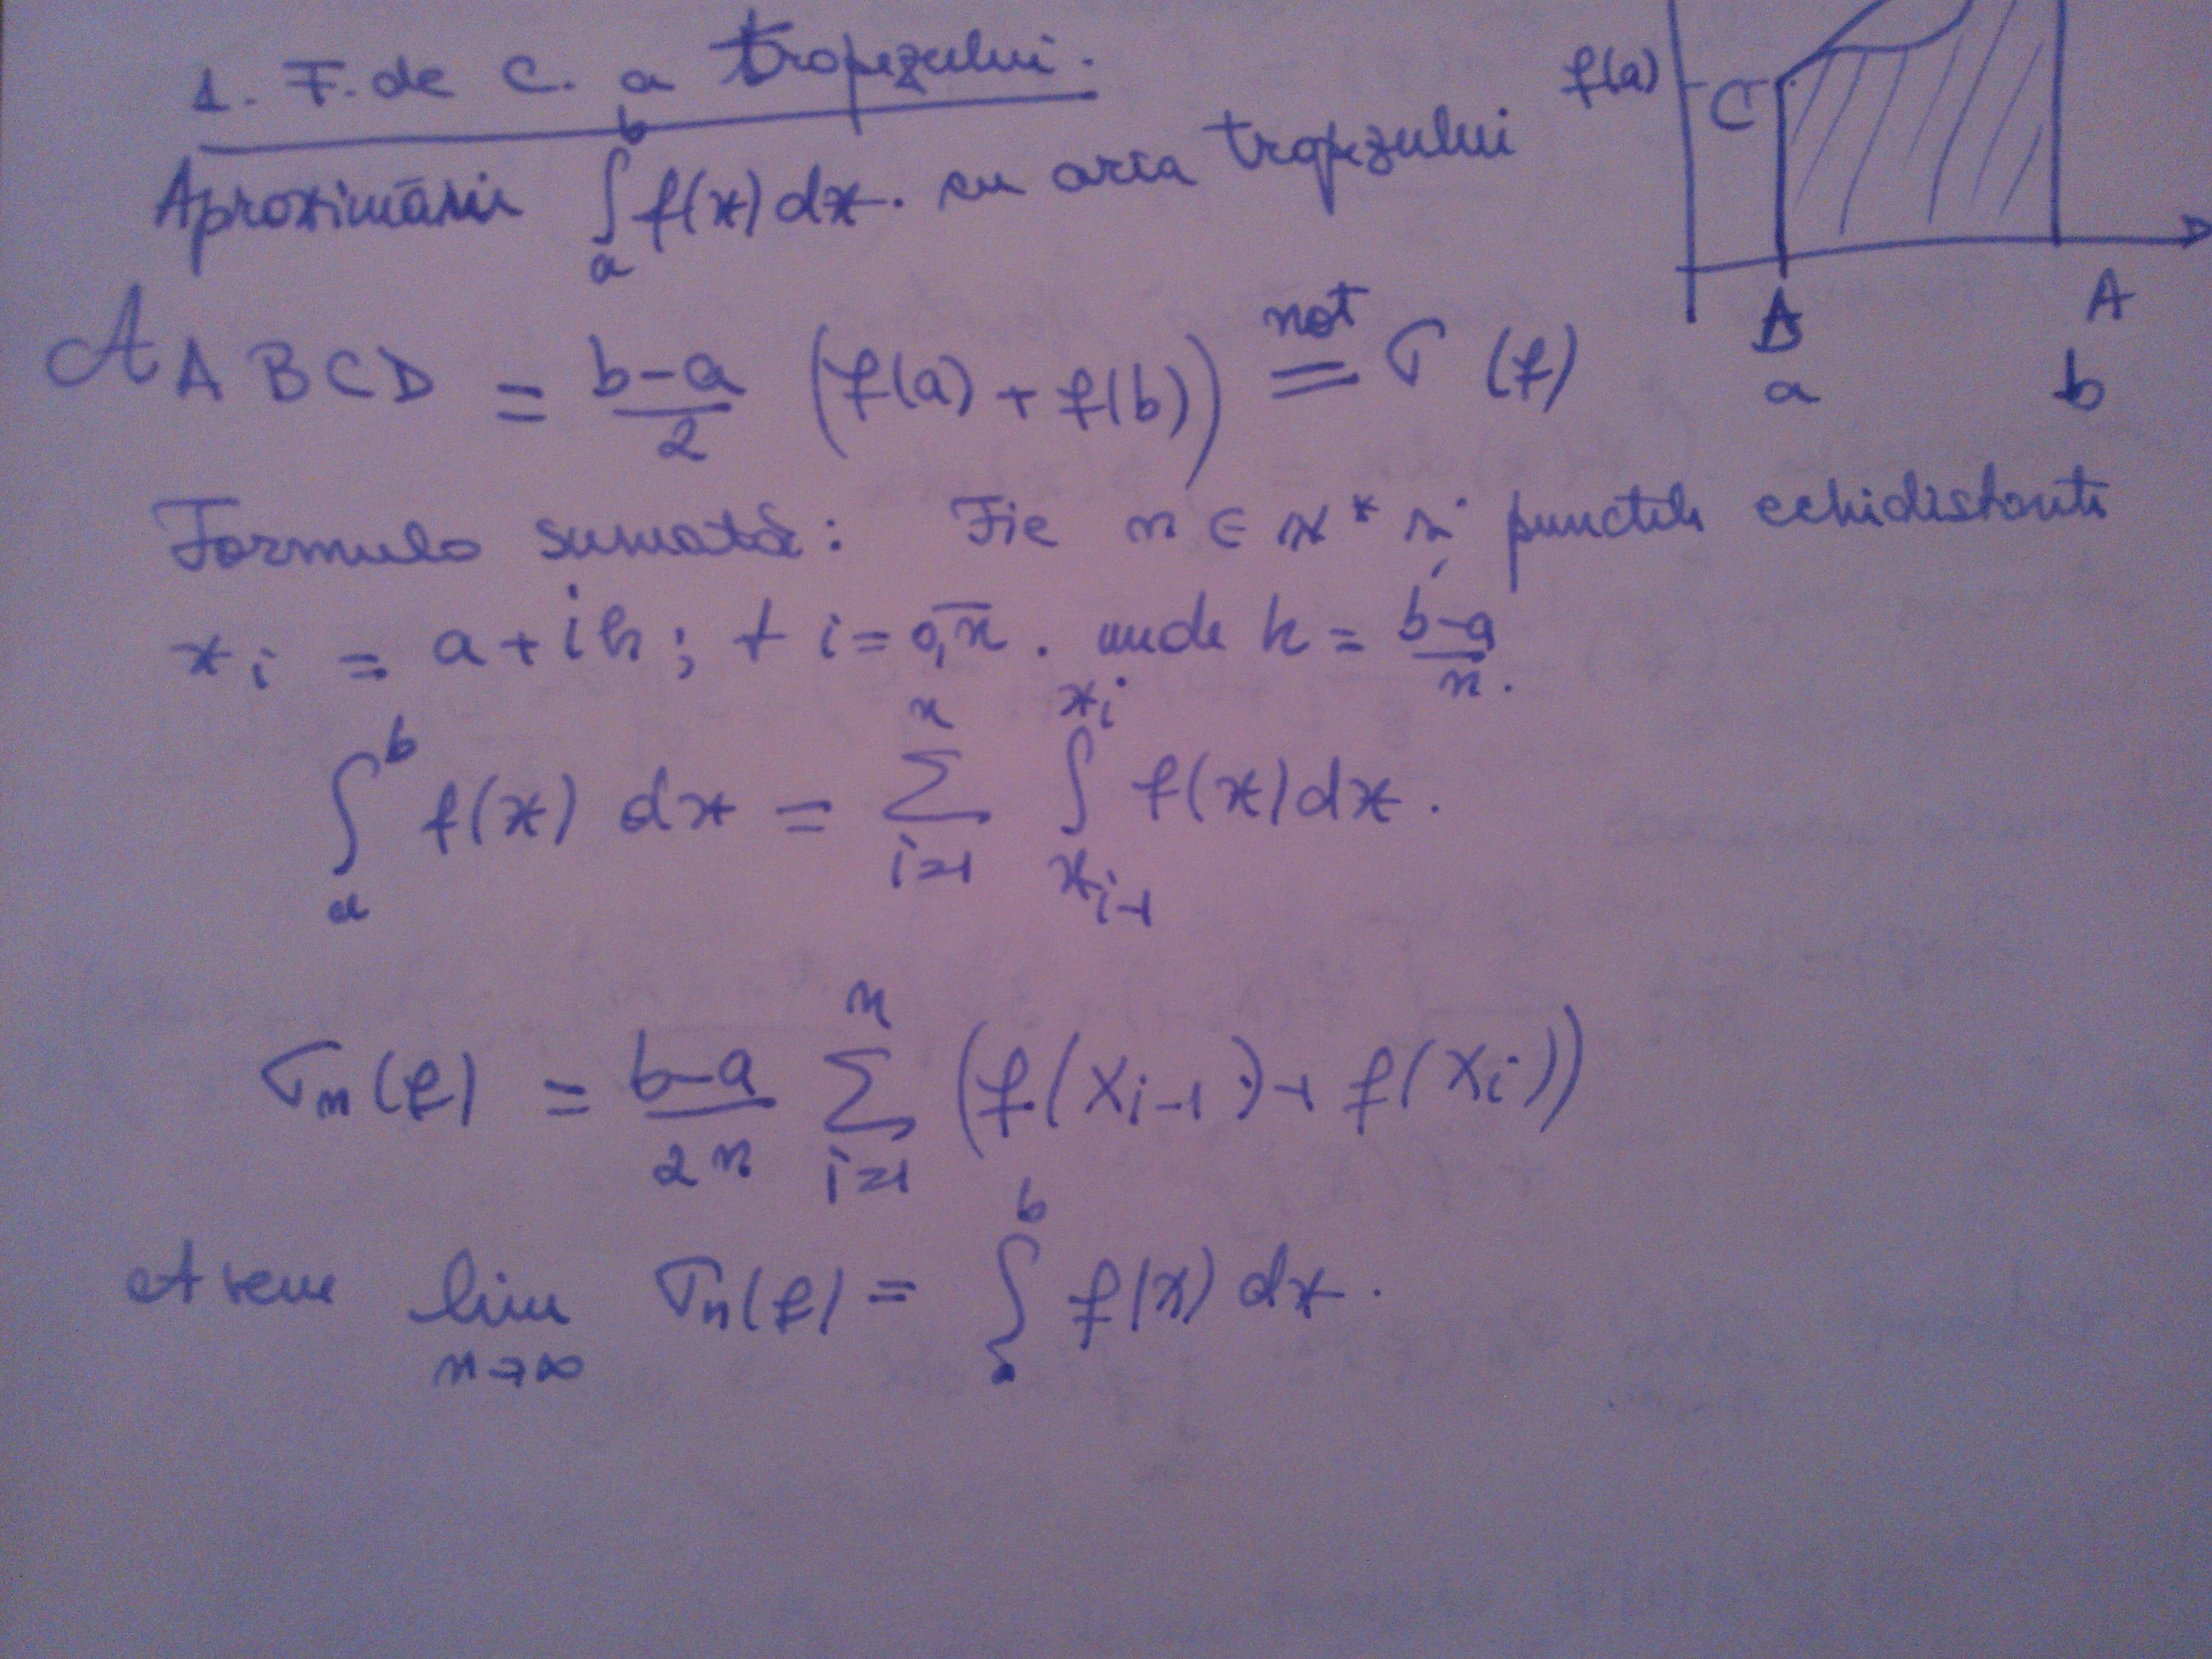 1. F. de C. a trapezului.
Aproximăm ∫_a^b f(x) dx. cu aria trapezului
f(a) C
B A
a b
A_{ABCD} = \frac{b-a}{2} (f(a) + f(b)) \overset{not}{=} T (f)
Formula sumată: Fie n ∈ N* și punctele echidistante
x_i = a + ih; ∀ i = \overline{0,n}. unde h = \frac{b-a}{n}.
∫_a^b f(x) dx = ∑_{i=1}^n ∫_{x_{i-1}}^{x_i} f(x) dx.
T_n(f) = \frac{b-a}{2n} ∑_{i=1}^n (f(x_{i-1}) + f(x_i))
Avem \lim_{n→∞} T_n(f) = ∫_a^b f(x) dx.